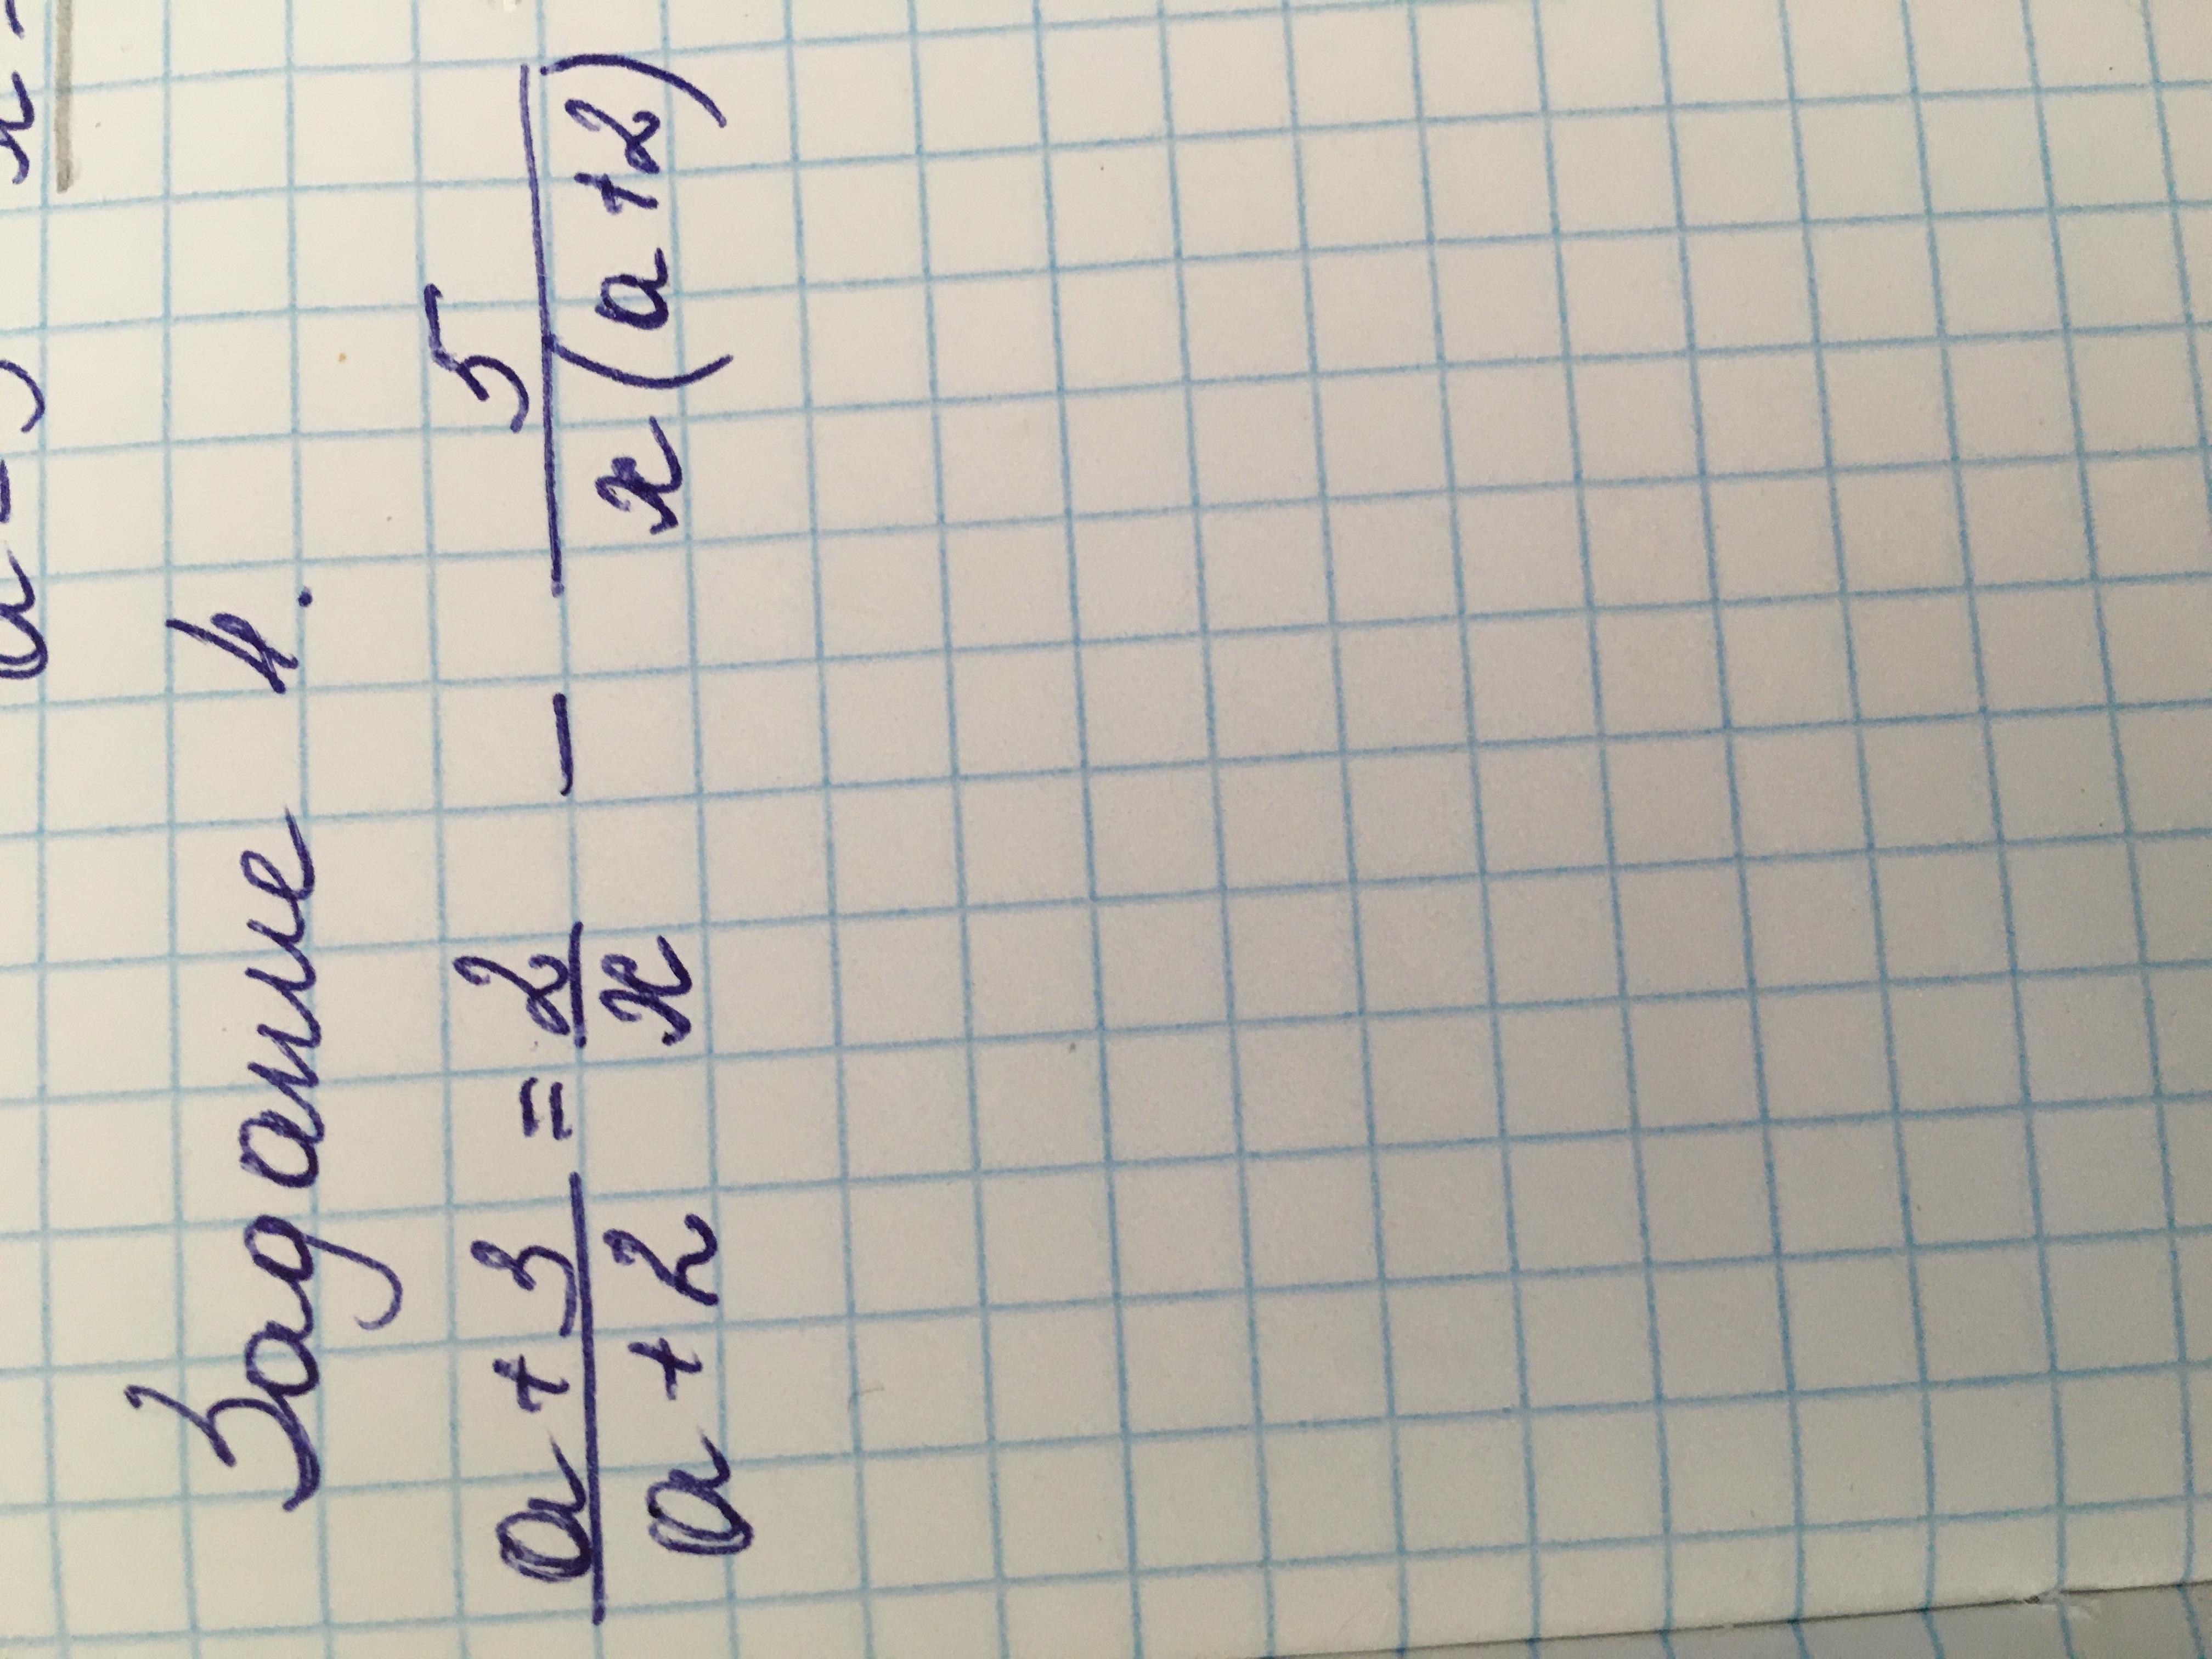 Задание 4.
a + 3 / a + 2 = 2 / x - 5 / x (a + 2)